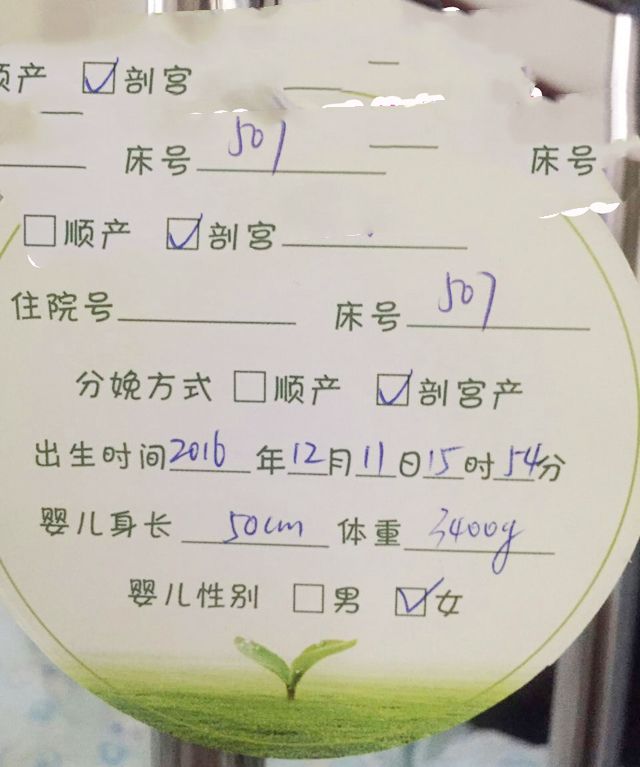 顺产 ☑剖宫
床号 507 床号
☐顺产 ☑剖宫
住院号 床号 507
分娩方式 ☐顺产 ☑剖宫产
出生时间2016年12月11日15时54分
婴儿身长 50cm 体重 3400g
婴儿性别 ☐男 ☑女